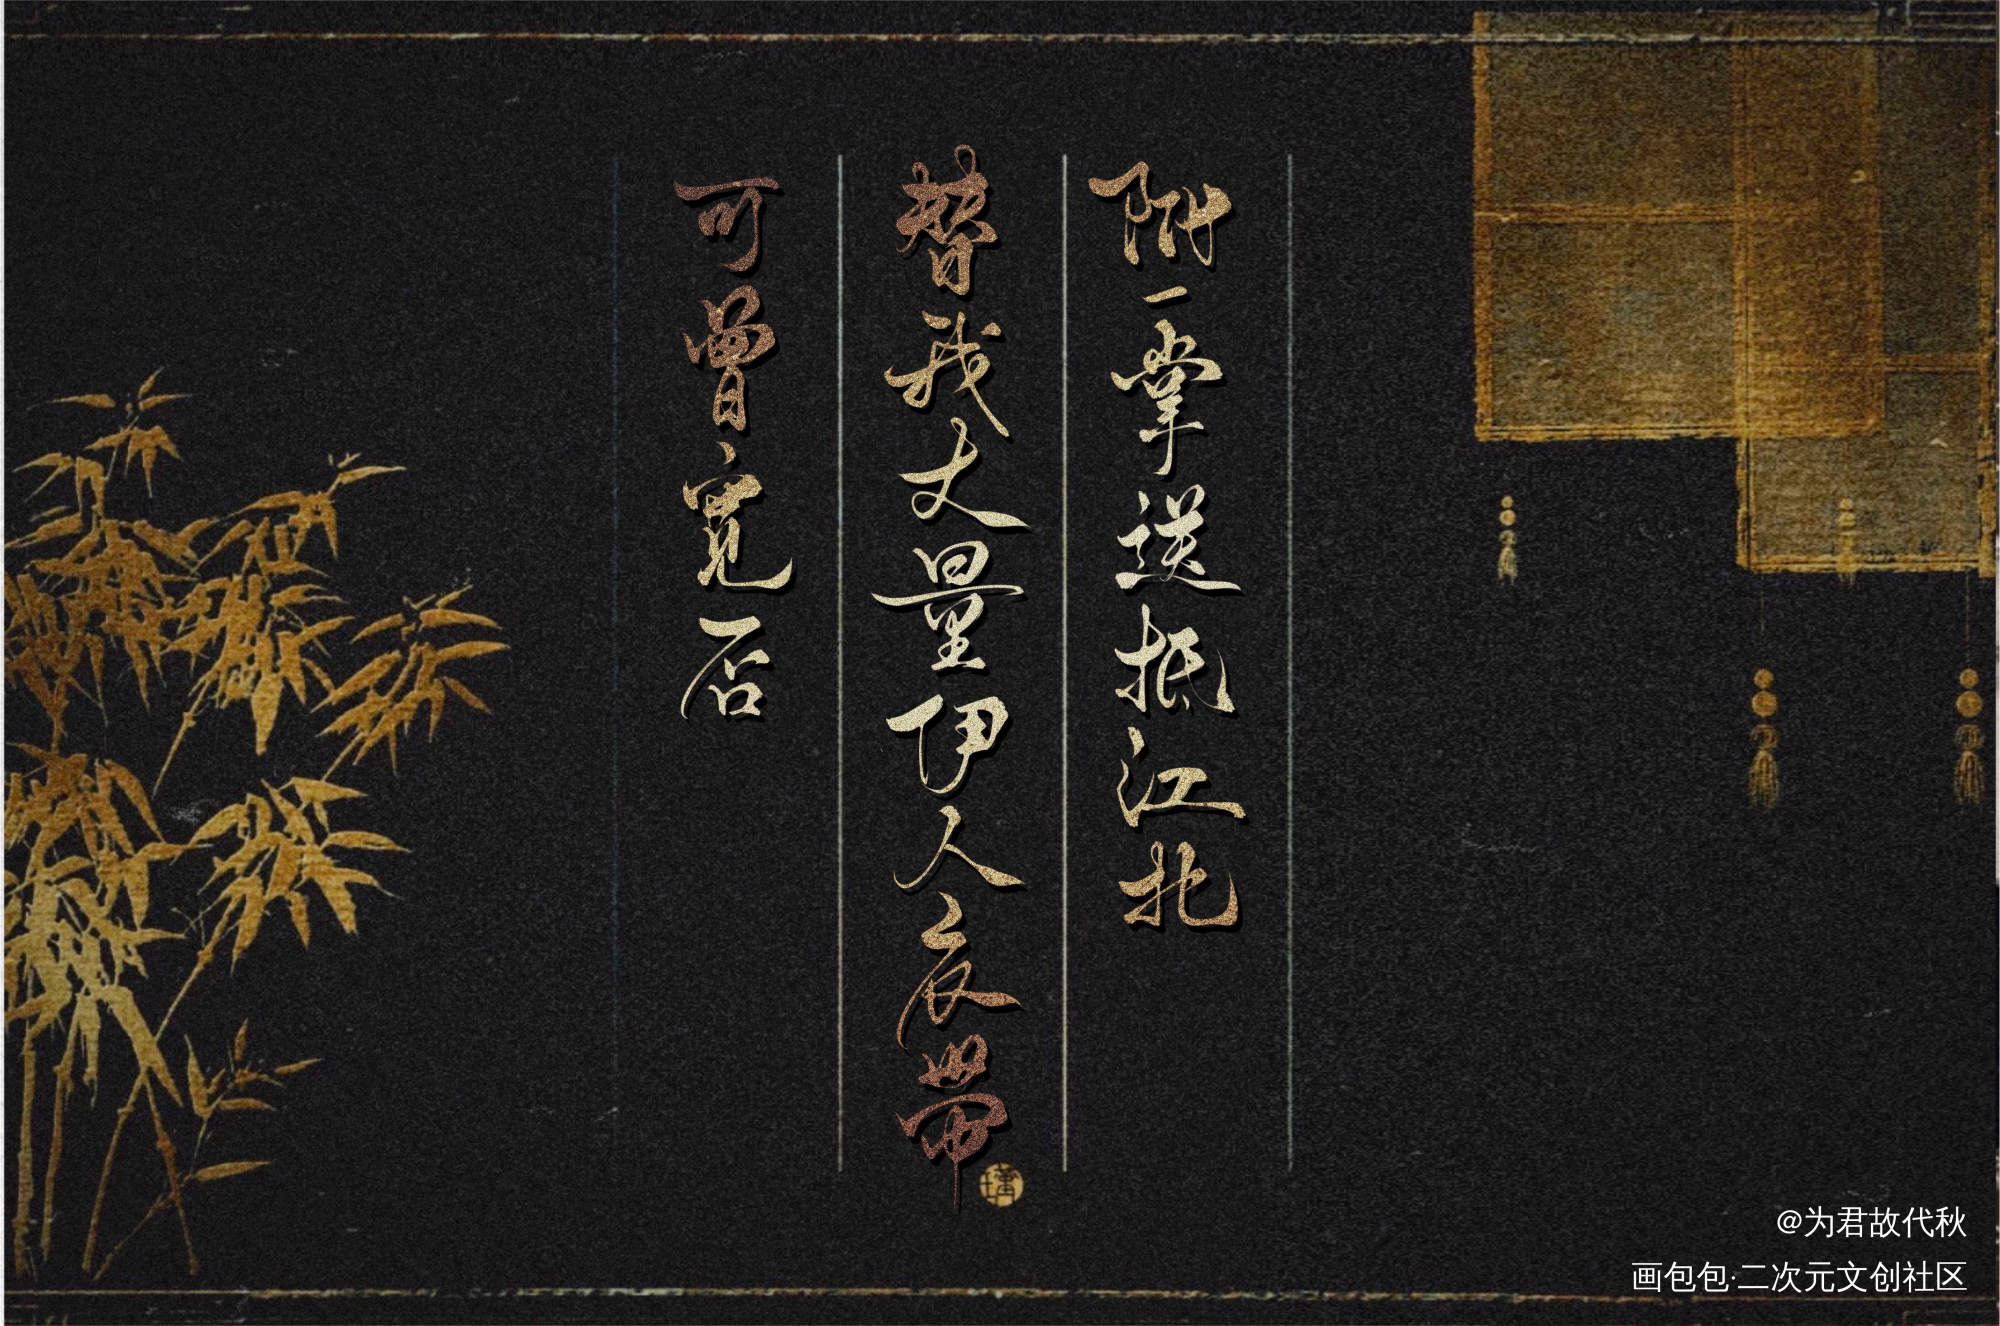 附一掌送抵江北
替我丈量伊人衣带
可曾宽否
@为君故代秋
画包包·二次元文创社区